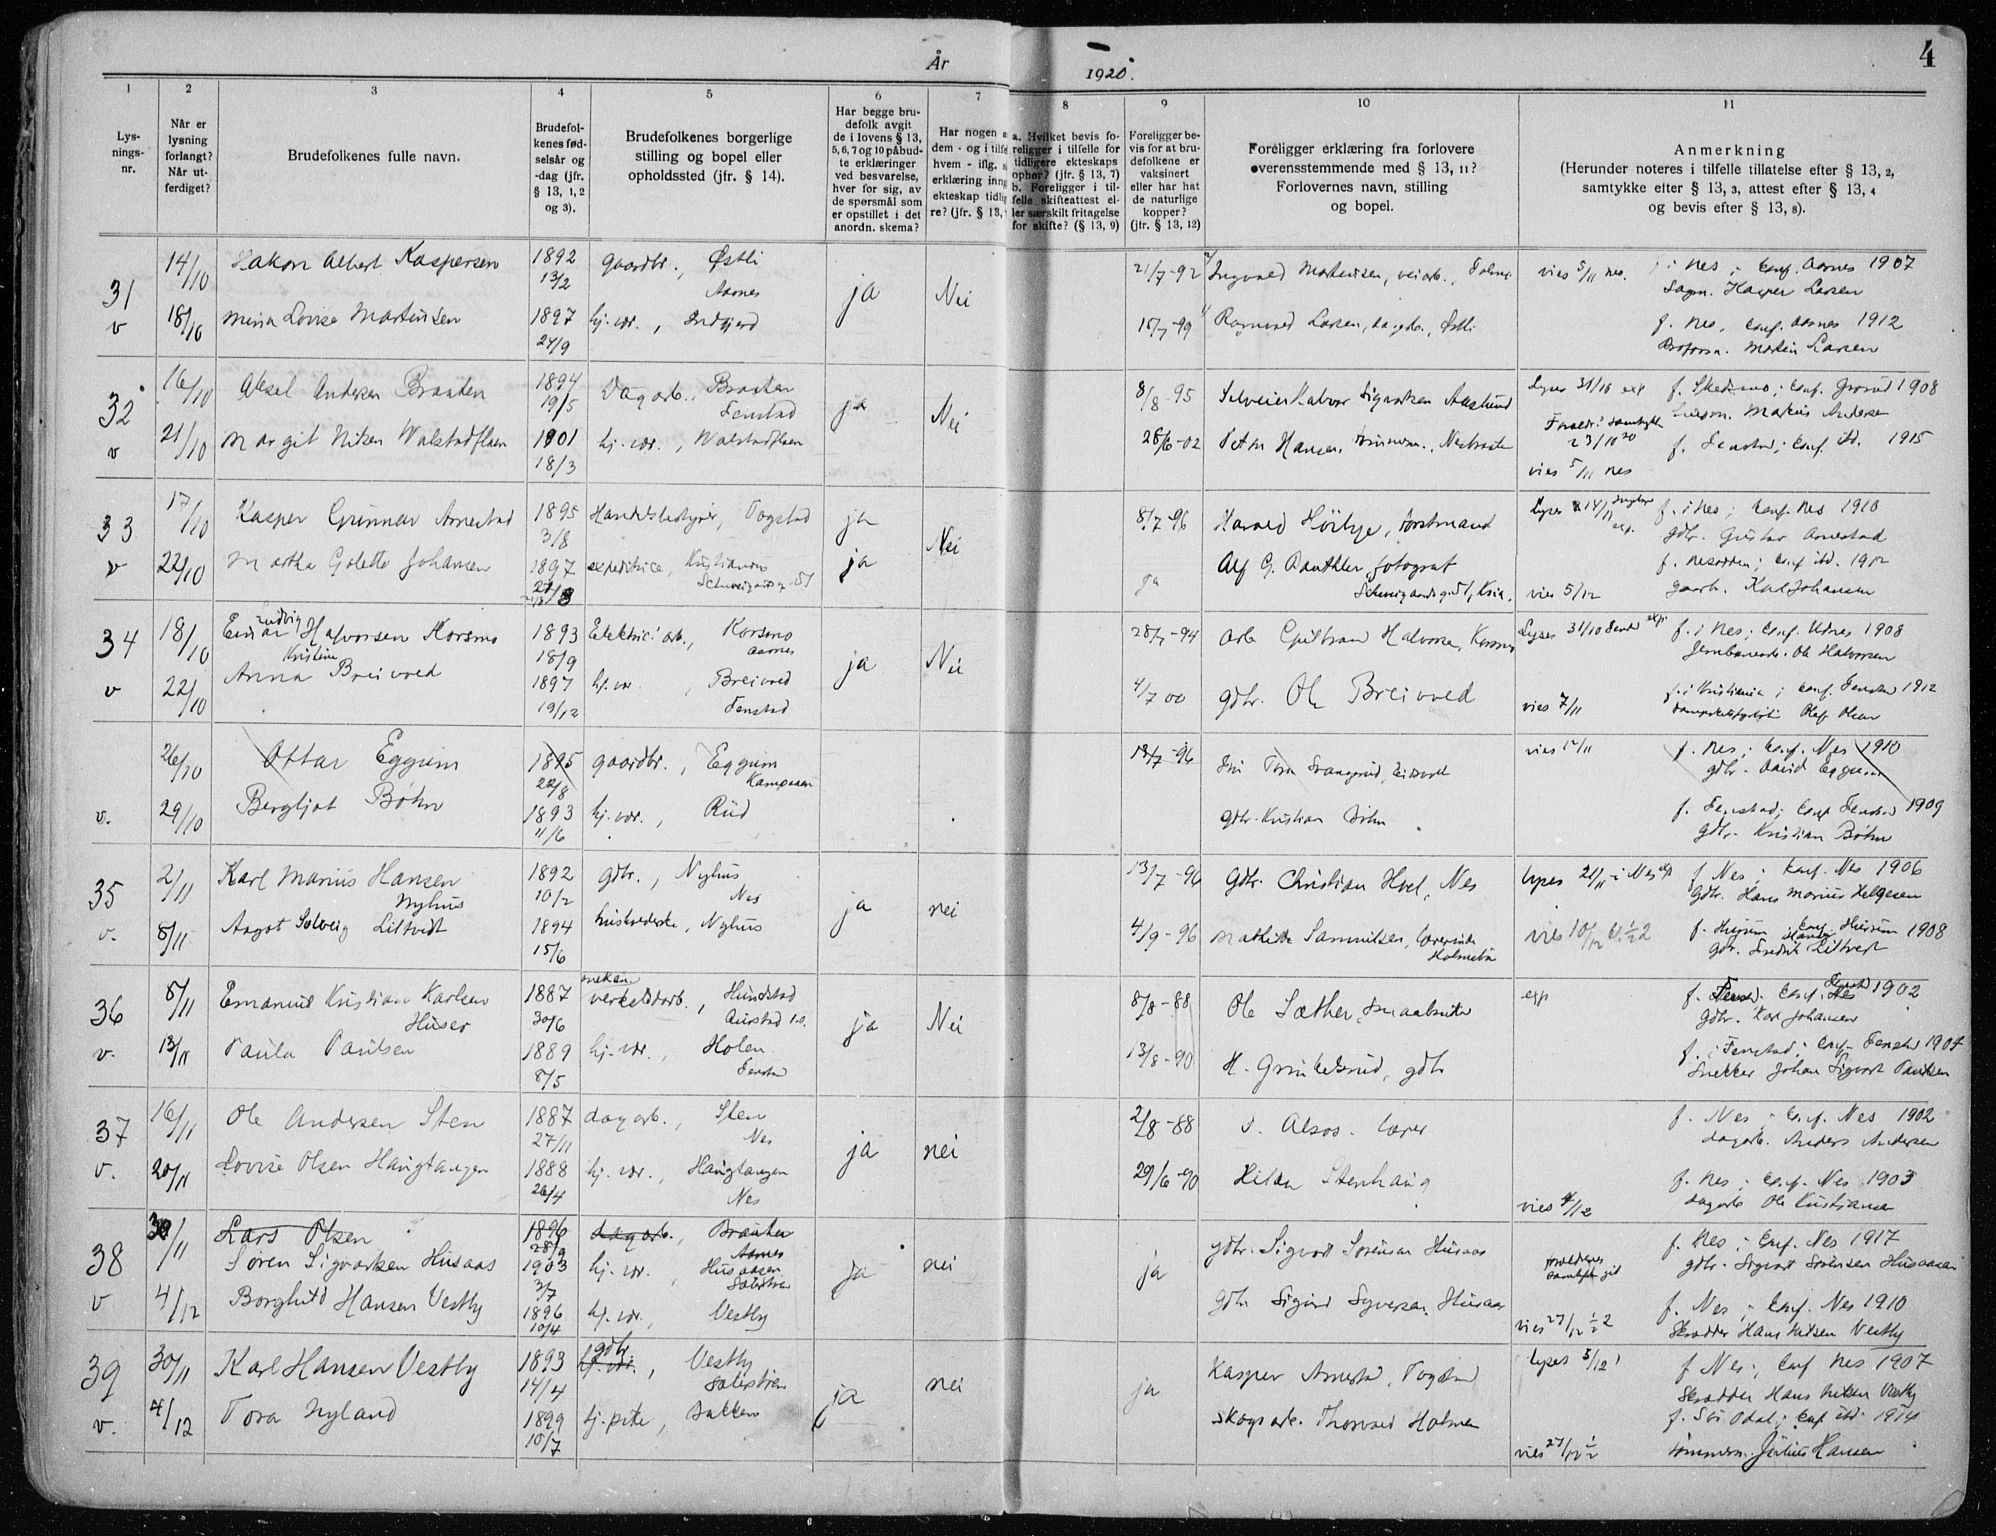 År
1920.
4
1
2
3
4
5
6
7
8
9
10
11
Lys-
nings-
nr.
Når er
lysning
forlangt?
Når ut-
ferdiget?
Brudefolkenes fulle navn.
Brudefol-
kenes fød-
selsår og
-dag (jfr.
§ 13, 1, 2
og 3).
Brudefolkenes borgerlige
stilling og bopel eller
opholdssted (jfr. § 14).
Har begge bru-
defolk avgit
de i lovens § 13,
5, 6, 7 og 10 påbud-
te erklæringer
ved besvarelse,
hver for sig, av
de spørsmål som
er opstillet i det
anordn. skema?
Har nogen a
dem - og i tilfe
hvem - iflg.
erklæring inng
ekteskap tidlig
re? (jfr. § 13,
a. Hvilket bevis fo-
religger i tilfelle for
tidligere ekteskaps
ophør? (jfr. § 13, 7)
b. Foreligger i til-
felle skifteattest el-
ler særskilt fritagelse
for skifte? (§ 13, 9)
Foreligger be-
vis for at bru-
defolkene er
vaksinert
eller har hat
de naturlige
kopper?
(jfr. § 13, 12)
Foreligger erklæring fra forlovere
overensstemmende med § 13, 11?
Forlovernes navn, stilling
og bopel.
Anmerkning
(Herunder noteres i tilfelle tillatelse efter § 13, 2,
samtykke efter § 13, 3, attest efter § 13, 4
og bevis efter § 13, 8).
31 14/10 Hakon Albert Kaspersen 1892 13/2 gaardbr., Østli Aarnes ja Nei 21/7-92 Ingvald Martinsen, veiarb., vies 5/11 nes. i Nes; Conf. Aarnes 1907
Sagm. Kasper Larsen
v 18/10 Mina Lovise Martinsen 1897 27/9 hj. vær., 15/7-99 Ragnvald Larsen, dagarb., Østli f. Nes, Conf. Aarnes 1912
Martin Larsen
32 16/10 Aksel Andersen Braaten 1894 19/5 Dagarb., Braaten Fenstad ja Nei 8/8-95 Halvor Sigvartsen Aaslund Lyses 31/10 exp f. Skedsmo; Conf. 1908
Markus Andersen
v 21/10 Margit Nilsen Walstadflaen 1901 18/3 hj. vær., Walstadflaen 28/6-02 Petter Hansen, tømmerm., 23/10 20 f. Fenstad; Conf. ibd. 1915
vies 5/11 nes
33 17/10 Kasper Gunnar Arnestad 1895 3/8 Handelsbestyrer, Togstad ja Nei 8/7-96 Harald forstmand Lyses 14/11 exp. f. i Nes; Conf. Nes 1910
gdbr. Gustav Arnestad
v 22/10 Martha Golette Johansen 1897 expeditrice, Kristiania Schweigaardsg. 51 ja ja Alf G. fotograf
Schweigaardsg. 51, Kria. vies 5/12 f. Nesodden; Conf ibd. 1912
gaarb. Karl Johansen
34 18/10 Einar Ludvig Halvorsen Korsmo 1893 18/9 Elektric. arb., Korsmo Aarnes ja Nei 28/7-94 Arb. Halvorsen, Korsmo Lyses 31/10 exp f. i Nes; Conf. Udnes 1908
Jernbanearb. Ole Halvorsen
v 22/10 Anna Kristine Breivved 1897 19/12 hj. vær., Breivved Fenstad 4/7 00 gdbr. Ole Breivved vies 7/11 f. i Kristiania; Conf. Fenstad 1912
Olaf Olsen
26/10 Ottar Eggum 1895 22/8 gaardbr., Eggum Kampaaen 18/7-96 Tora Svangerud, Eidsvoll vies 12/11 f. Nes; Conf. Nes 1910
gdbr. David Eggum
v. 29/10 Bergljot Bøhn 1893 11/6 hj. vær., Rud gdbr. Kristian Bøhn f. Fenstad; Conf Fenstad 1909
gdbr. Kristian Bøhn
35 2/11 Karl Marius Hansen Nyhus 1892 10/2 gdbr., Nyhus Nes ja nei 13/7-96 Gdbr. Christian Hvel, Nes lyses 21/11 i Nes exp f Nes; Conf. Nes 1906
Gdbr. Hans Marius Helgesen
v. 8/11 Aagot Solveig Litvedt 1894 15/6 Nyhus 4/9-96 Mathilde Samuelsen, lærerinde vies 10/12 kl. ½2 f. Hurum Conf. Hurum 1908
gdbr. Fredrik Litvedt
36 8/11 Emanuel Kristian Karlsen Huser 1887 30/6 mekan. verkstedarb., Hundstad Aurskog ja Nei 8/8-88 Ole Sæther, smaabruker exp f. Fenstad Conf. Nes 1902
Gdbr. Karl Johansen
v. 13/11 Paula Paulsen 1889 8/5 hj. vær., Holen Fenstad 13/8-90 H. gdbr f. i Fenstad; Conf. Fenstad 1904
Snekker Johan Sigvart Paulsen
37 16/11 Ole Andersen Sten 1887 27/11 dagarb., Sten Nes ja nei 2/8-88 lærer f. Nes; Conf. Nes 1902
dagarb. Anders Andersen
v. 20/11 Lovise Olsen Haugtangen 1888 26/4 hj. vær., Haugtangen Nes 29/6-90 Hilda Stenhaug vies 4/12 f. Nes; Conf. Nes 1903
dagarb Ole Kristiansen
38 30/11 Lars Olsen 1896 28/9 dagarb., Braaten Aarnes
Søren Sigvartsen Husaas 1903 3/7 hj. vær. Husaasen ja nei ja gdbr. Sigvart Sørensen Husaas forældrenes samtykke git f. Nes; Conf. Nes 1917
gdbr. Sigvart Sørensen Husaasen
v 4/12 Borghild Hansen Vestby 1896 10/4 hj. vær., Vestby gdbr Sigurd Syversen, Husaas vies 27/12 ½2 f. Nes; Conf. Nes 1910
Skrædder Hans Nilsen Vestby
39 30/11 Karl Hansen Vestby 1893 14/4 gdbr hj. vær., Vestby ja nei ja Kasper Arnestad, Togstad lyses 5/12 f Nes; Conf Nes 1907
Skrædder Hans Nilsen Vestby
v. 4/12 Tora Nyland 1899 10/7 hj. pike, Bakken Skogsarb. Thorvald Holmen vies 27/12 ½ f. Sør Odal; Conf ibd. 1914
tømmerm. Julius Hansen